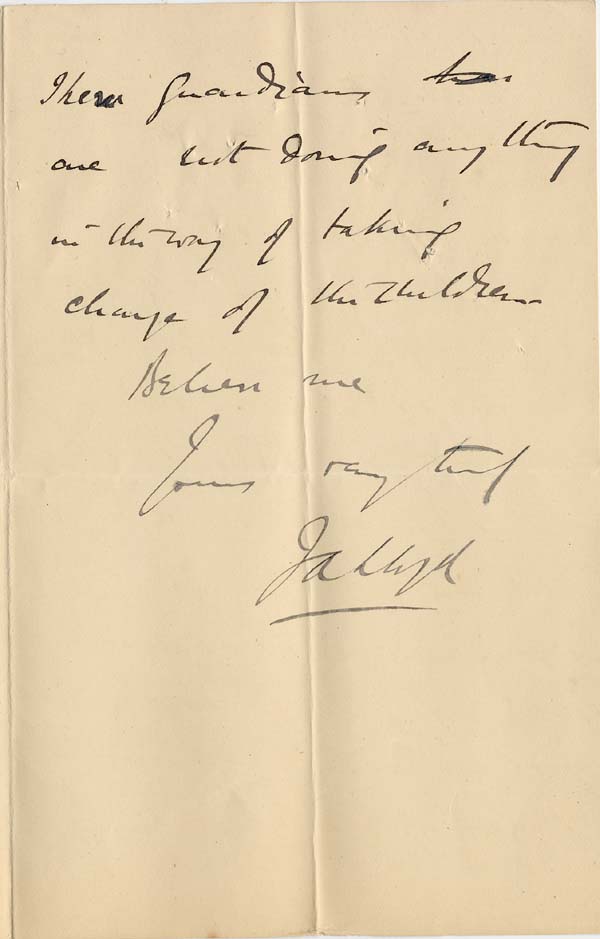 These Guardians
are not doing anything
in the way of taking
charge of the children
Believe me
Yours very truly